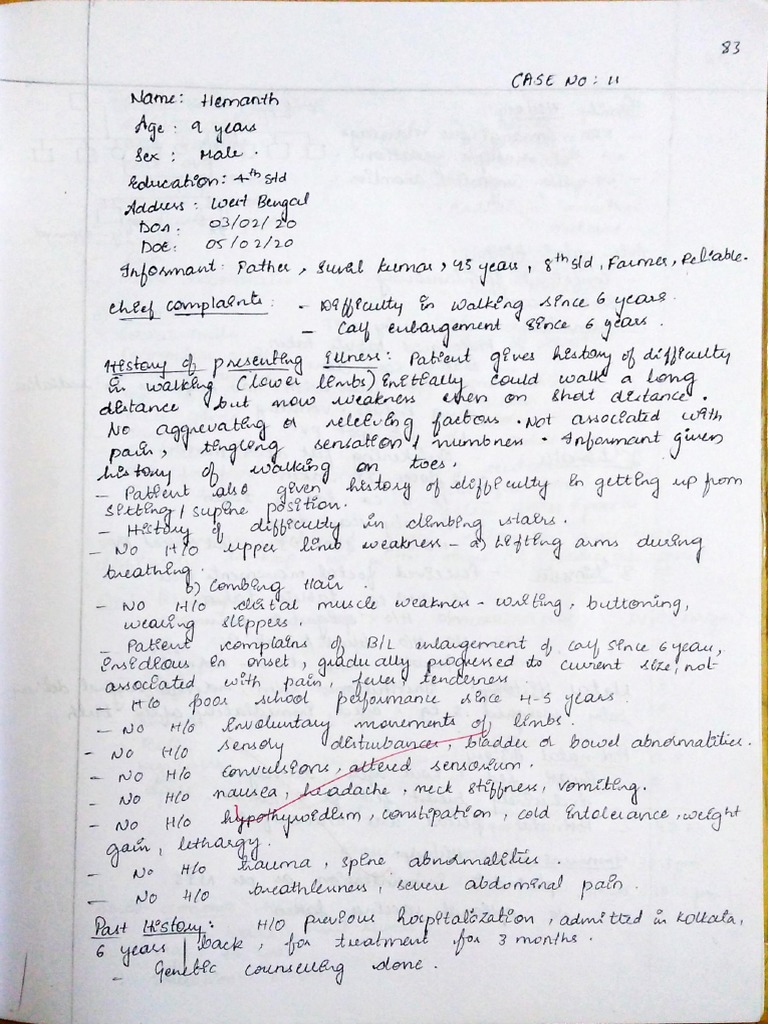 83
CASE NO: 11
Name: Hemanth
Age: 9 years
Sex: Male.
Education: 4th std
Address: West Bengal
DOA: 03/02/20
DOE: 05/02/20
Informant: Father, Sunil kumar, 45 years, 8th std, Farmer, Reliable.
Chief complaints: - Difficulty in walking since 6 years.
- Calf enlargement since 6 years.
History of presenting illness: Patient gives history of difficulty
in walking (lower limbs) initially could walk a long
distance but now weakness even on short distance.
No aggrevating or releiving factors. Not associated with
pain, tingling sensation / numbness. Informant given
history of walking on toes.
- Patient also given history of difficulty in getting up from
sitting / supine position.
- History of difficulty in climbing stairs.
- No H/o upper limb weakness - a) lifting arms during
breathing.
b) Combing Hair.
- No H/o distal muscle weakness - writing, buttoning,
wearing slippers.
- Patient complains of B/L enlargement of calf since 6 years,
insidious in onset, gradually progressed to current size, not
associated with pain, fever tenderness
- H/o poor school performance since 4-5 years.
- No H/o involuntary movements of limbs.
- No H/o sensory disturbances, bladder or bowel abnormalities.
- No H/o convulsions, altered sensorium.
- No H/o nausea, headache, neck stiffness, vomiting.
- No H/o hypothyroidism, constipation, cold intolerance, weight
gain, lethargy.
- No H/o trauma, spine abnormalities
- No H/o breathlessness, severe abdominal pain.
Past History: H/o previous hospitalization, admitted in Kolkata,
6 years back, for treatment for 3 months.
- Genetic counselling done.